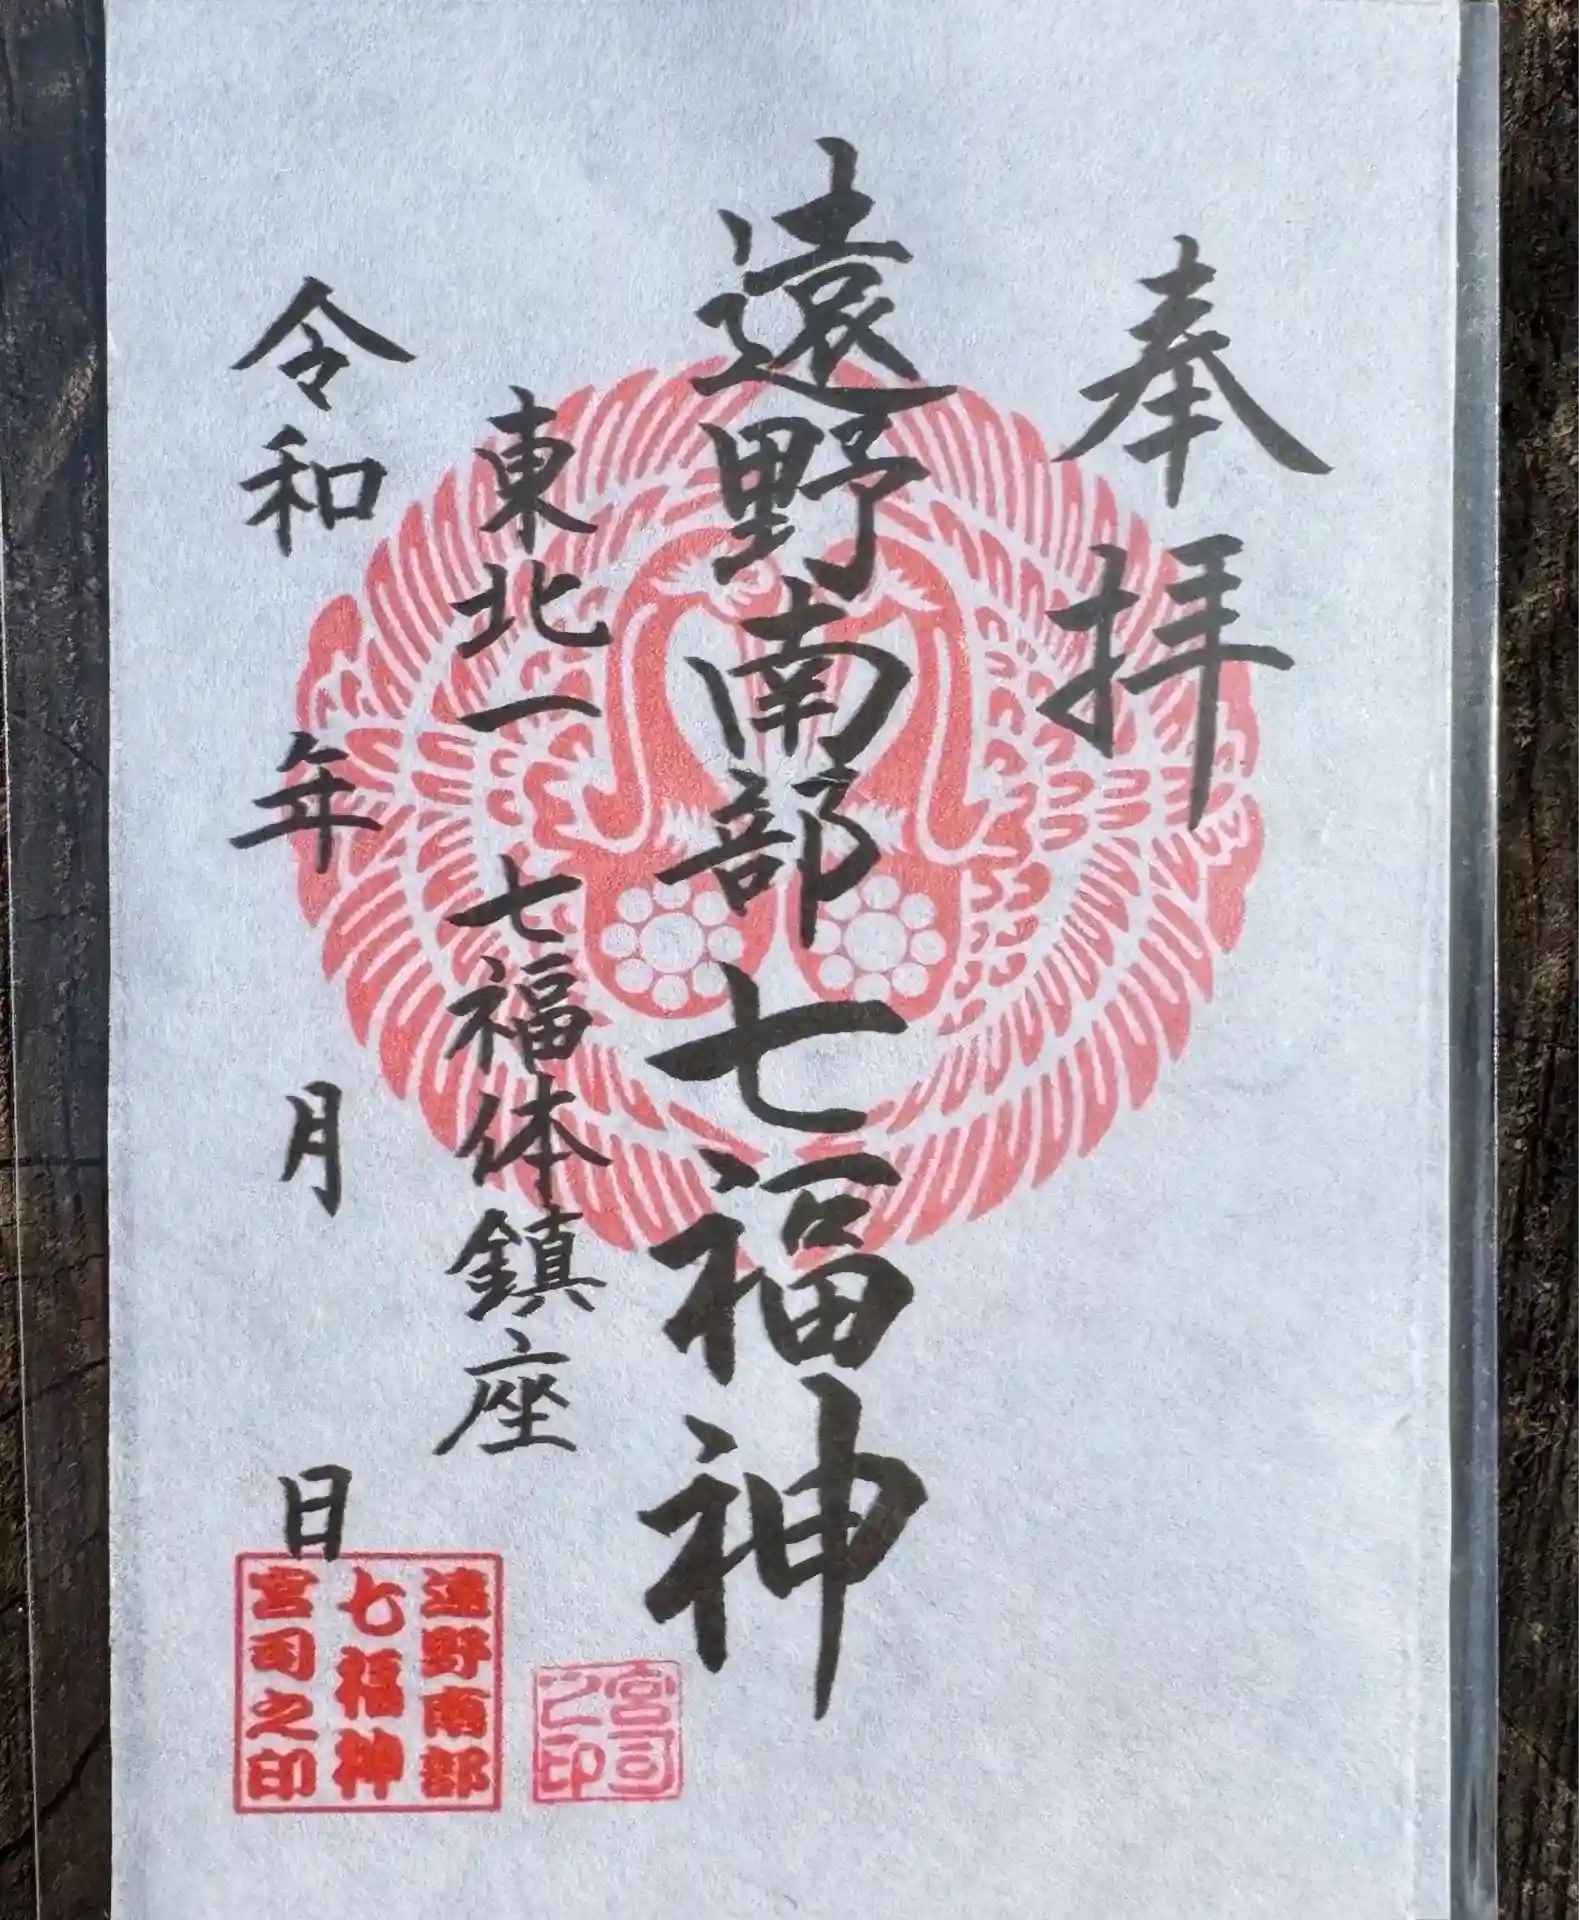 奉拝
遠野南部七福神
東北一 七福体鎮座
令和 年 月 日
宮司之印
遠野南部
七福神
宮司之印